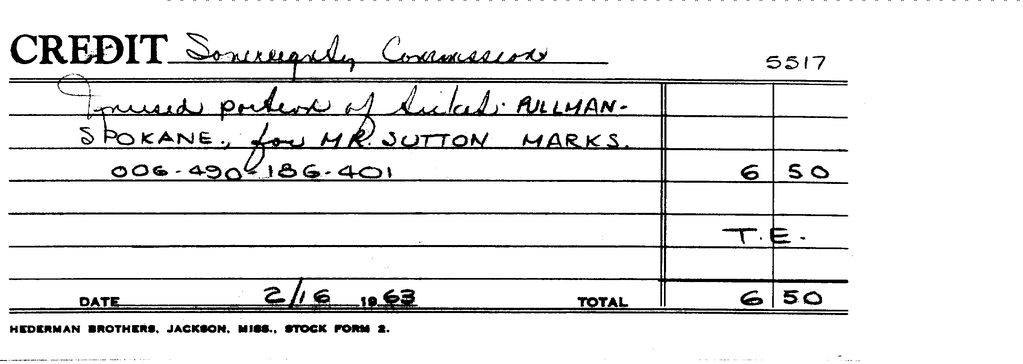 CREDIT Sovereignty Commission 5517
Unused portion of ticket: PULLMAN-
SPOKANE., for MR. SUTTON MARKS.
006-490-186-401 6 50
T.E.
DATE 2/16 1963 TOTAL 6 50
HEDERMAN BROTHERS, JACKSON, MISS., STOCK FORM 2.